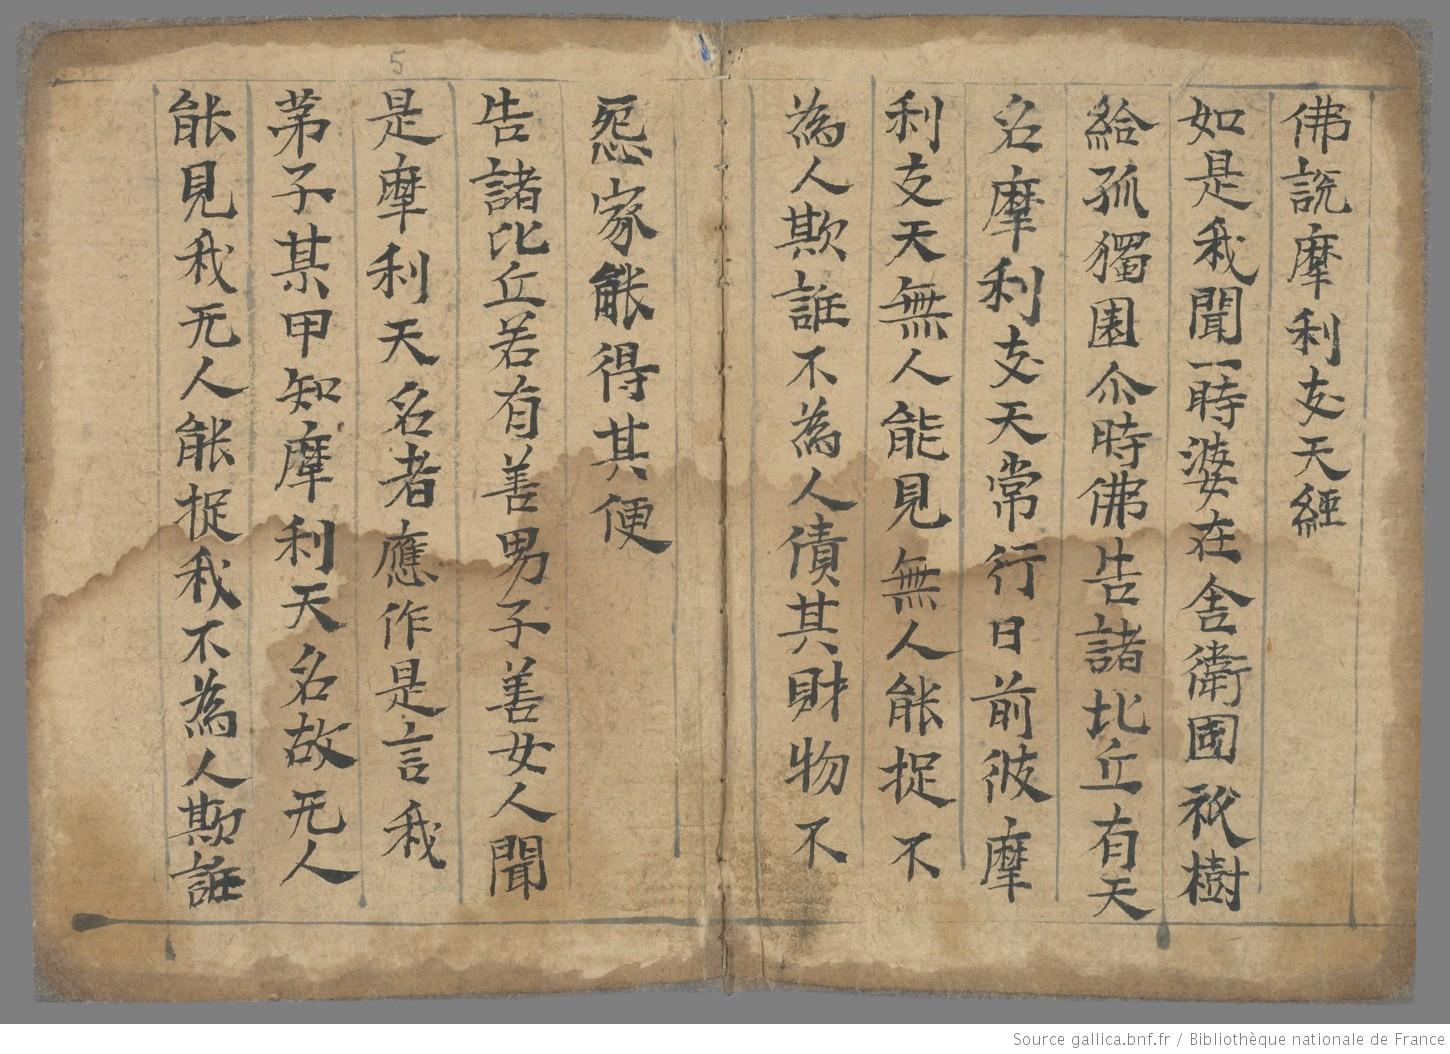 佛說摩利支天經
如是我聞一時婆在舍衛國祇樹
給孤獨園尒時佛告諸比丘有天
名摩利支天常行日前彼摩
利支天無人能見無人能捉不
為人欺誰不為人債其財物不
惌家能得其便
告諸比丘若有善男子善女人聞
是摩利天名者應作是言我
苐子某甲知摩利天名故无人
能見我无人能捉我不為人欺誰
5
Source gallica.bnf.fr / Bibliothèque nationale de France